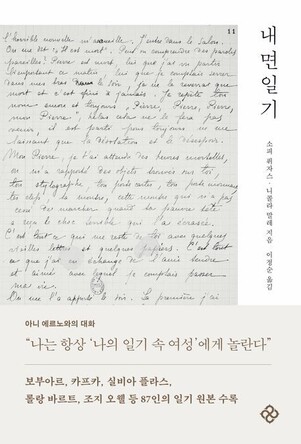 11
L'horrible nouvelle m'accueille. J'entre dans le salon.
On me dit : "il est mort". Peut-on comprendre des paroles
pareilles? Pierre est mort, lui que j'ai vu partir
bien portant ce matin, lui que je comptais serrer
dans mes bras ce soir, je ne le reverrai que
mort et c'est fini à jamais. Je répète ton
nom encore et toujours, "Pierre, Pierre, Pierre,
mon Pierre", hélas cela ne le fera pas
venir, il est parti pour toujours en me
laissant que la désolation et le désespoir.
Mon Pierre, je t'ai attendu des heures mortelles,
on m'a rapporté des objets trouvés sur toi,
ton stylographe, ton porte cartes, ton porte monnaie,
tes clefs, ta montre, cette montre qui n'a pas
cessé de marcher quand ta pauvre tête
a reçu le choc terrible qui l'a écrasée.
C'est tout ce qui me reste de toi avec quelques
vieilles lettres et quelques papiers. C'est tout
ce que j'ai en échange de l'ami tendre
et aimé avec lequel je comptais passer
ma vie.
On me l'a apporté le soir. La première j'ai
내면일기
소피 퓌자스·니콜라 말레 지음
이정순 옮김
아니 에르노와의 대화
“나는 항상 ‘나의 일기 속 여성’에게 놀란다”
보부아르, 카프카, 실비아 플라스,
롤랑 바르트, 조지 오웰 등 87인의 일기 원본 수록